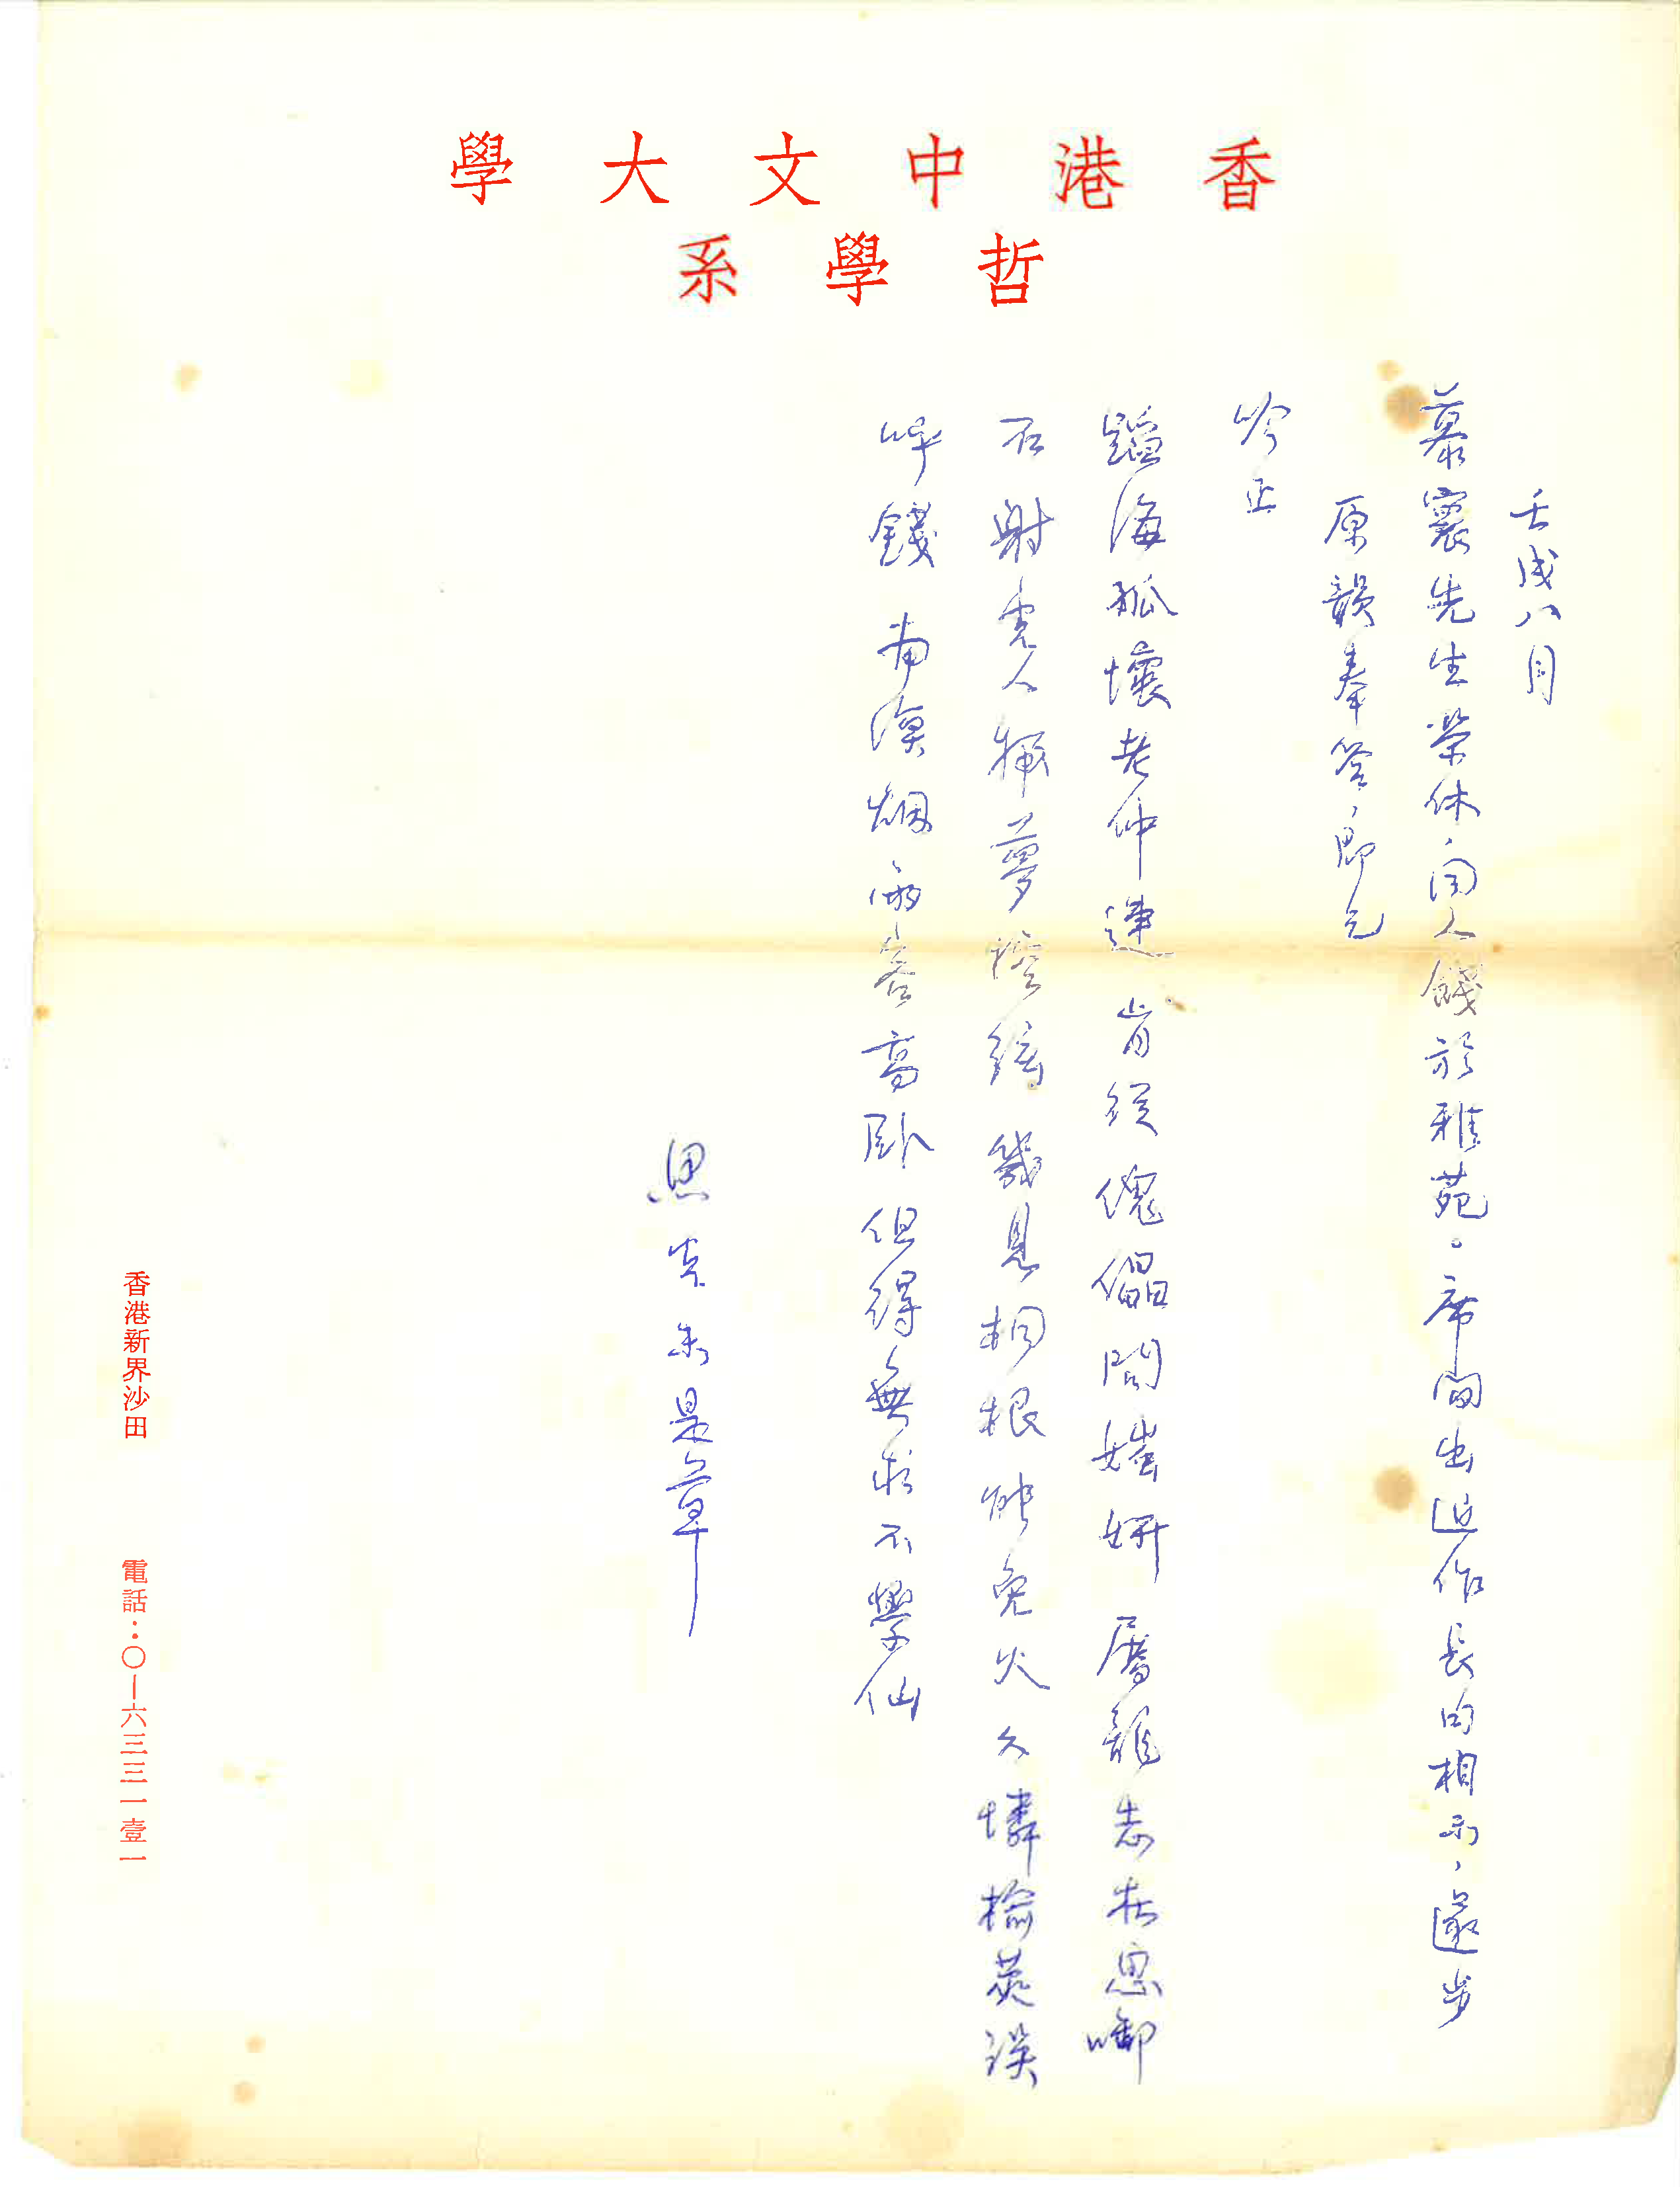 香港中文大學
哲學系
壬戌八月
慕寰先生榮休,同人餞於雅苑。席間出近作長句相示,遂步
原韻奉答,即乞
吟正
蹈海孤懷老仲連 肯從傀儡問媸妍 屠龍志在思啣
石 射虎人稀夢控弦 幾見桐根能免火 久憐榆莢誤
呼錢 南溟烟雨容高臥 但得無求不學仙
思光未是草
香港新界沙田 電話:〇—六三三一壹一